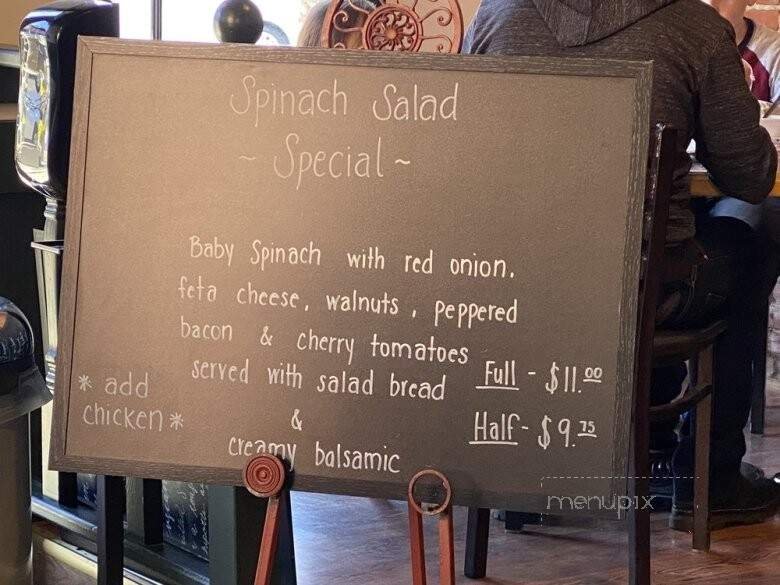 Spinach Salad
~ Special ~
Baby Spinach with red onion,
feta cheese, walnuts, peppered
bacon & cherry tomatoes
served with salad bread
&
creamy balsamic
* add
chicken *
Full - $11.00
Half - $9.75
menupix